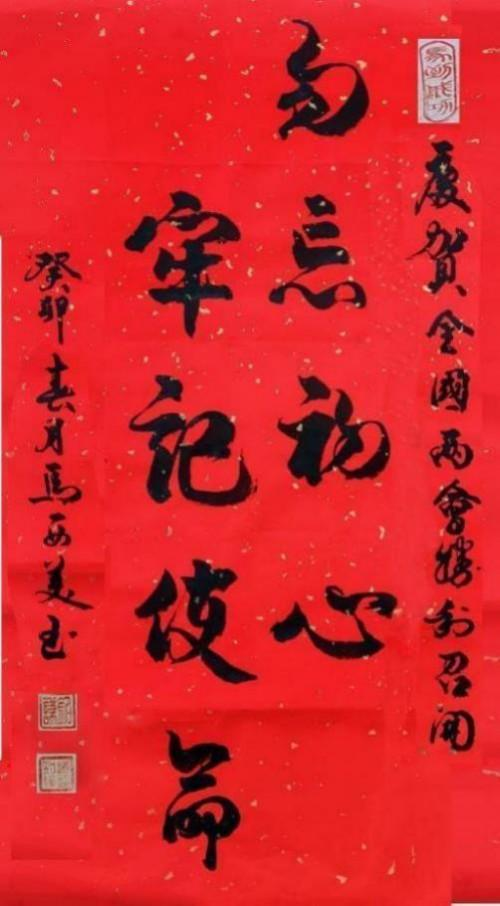 馬到成功
慶賀全國两會勝利召開
勿忘初心
牢記使命
癸卯春月馬西美書